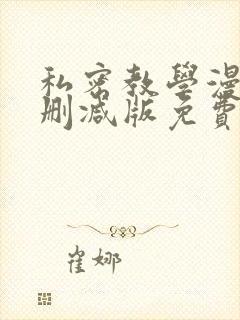 私密教學漫
刪減版免費
崔娜